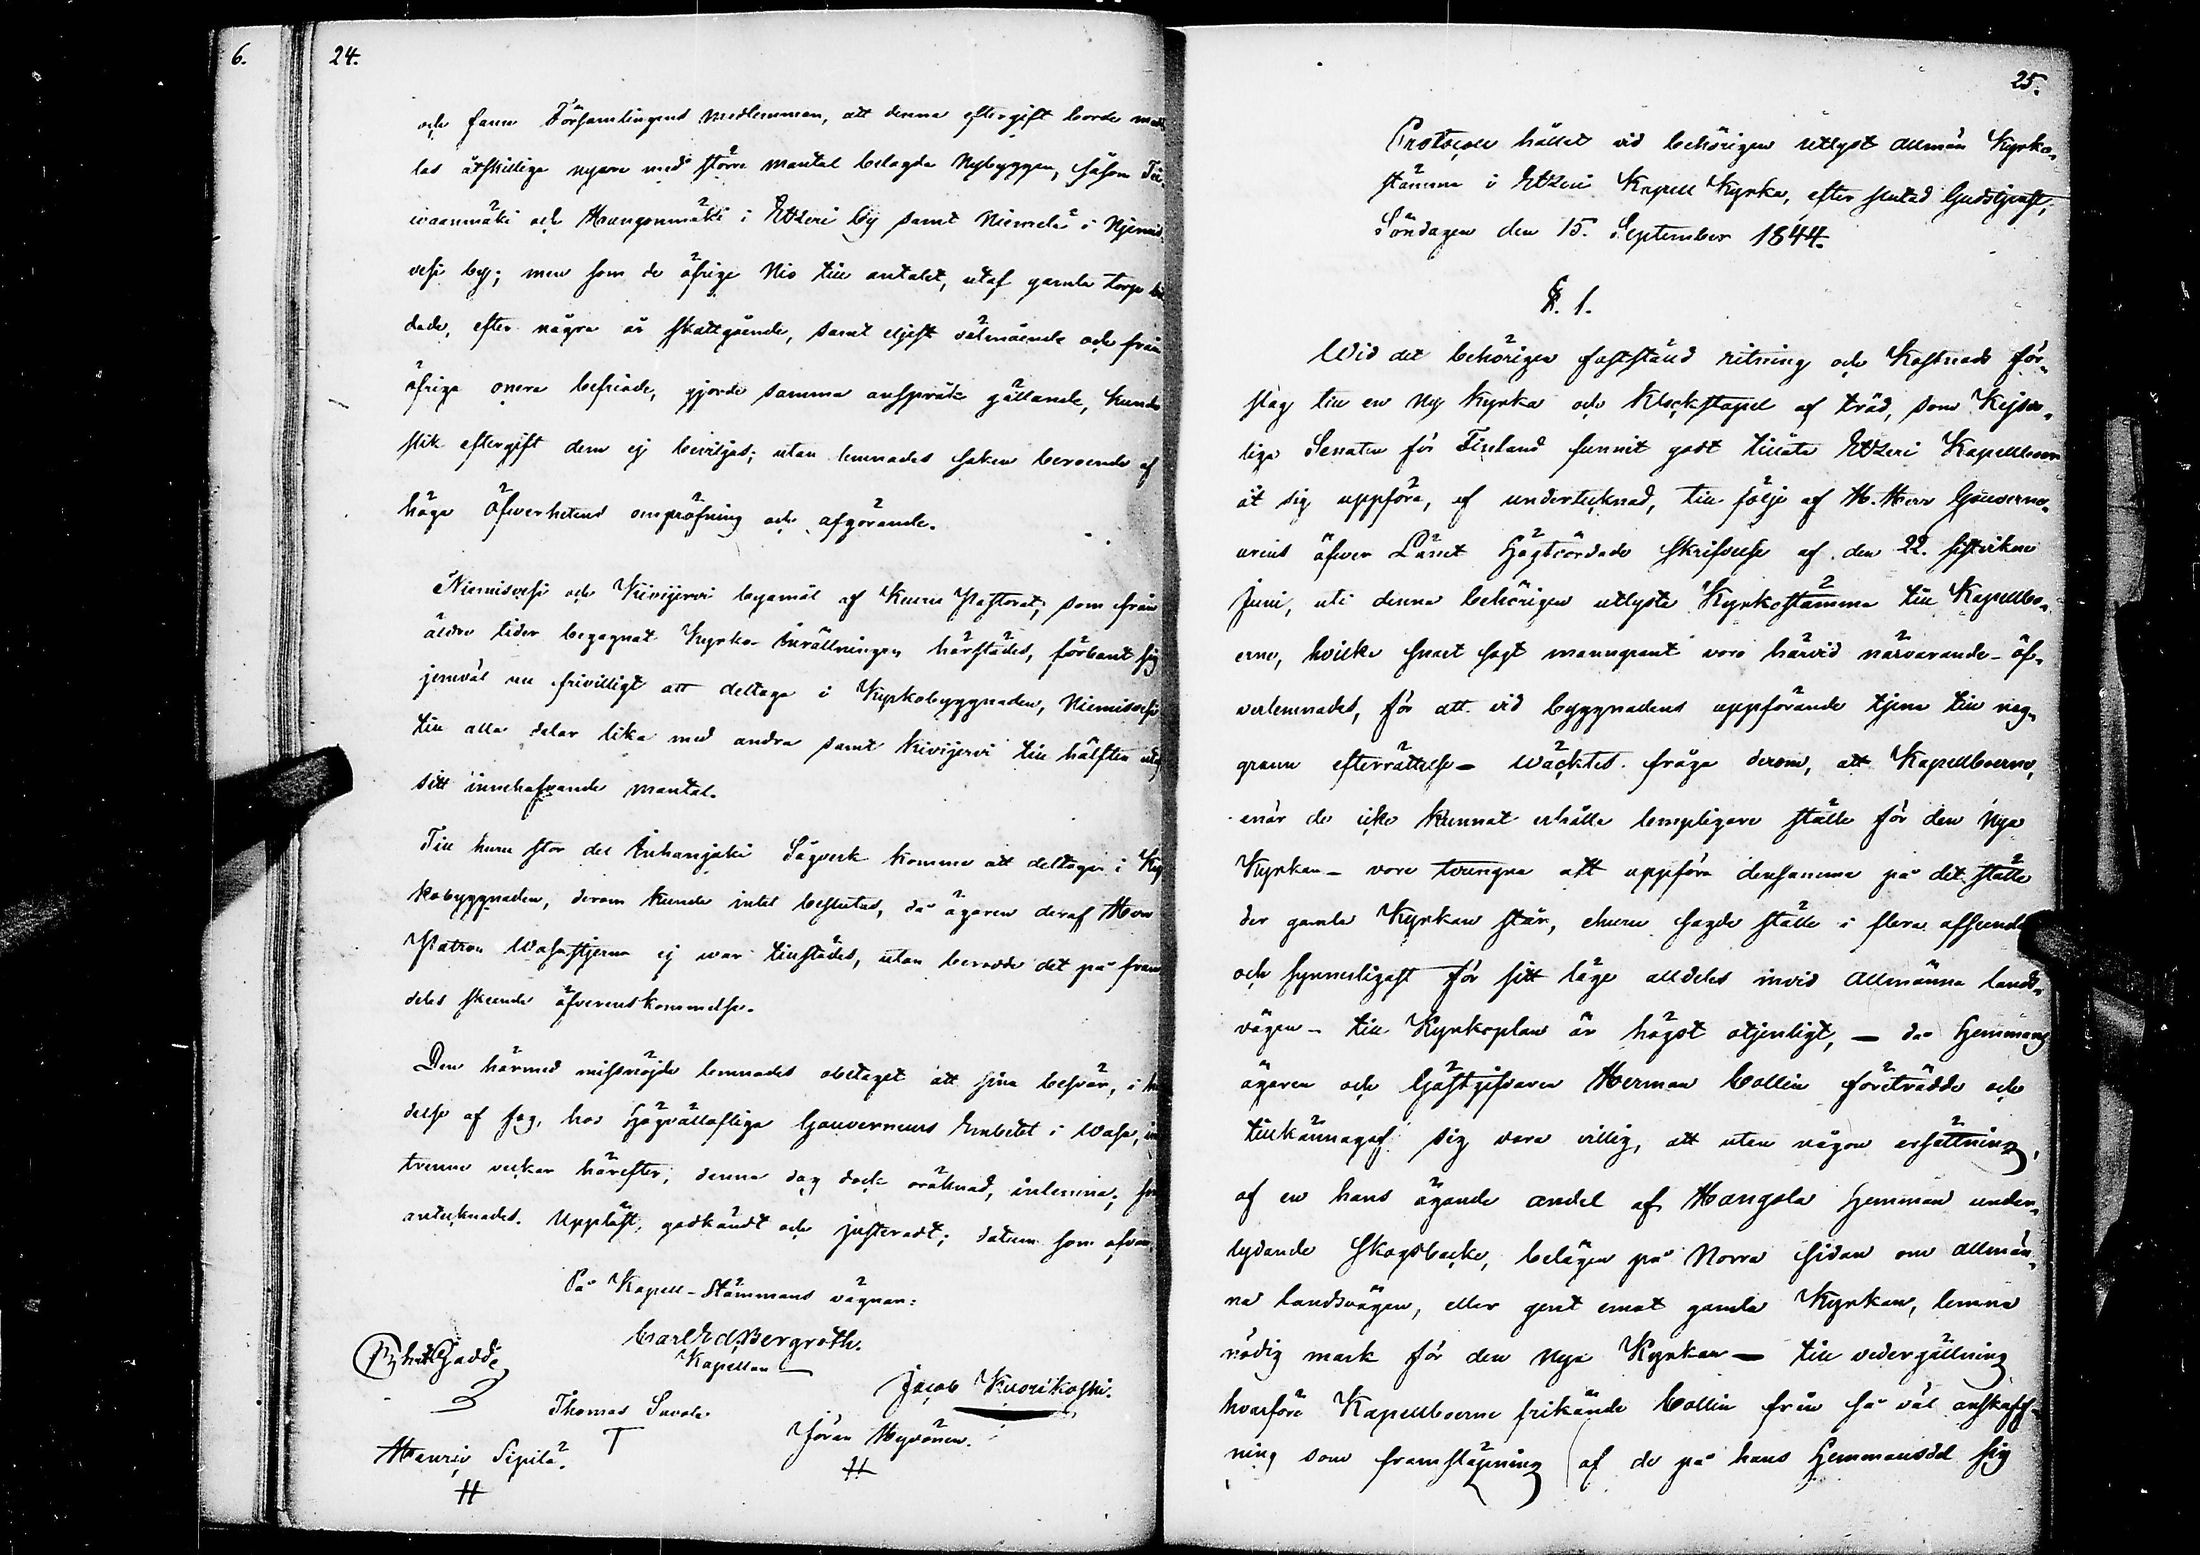 6.
24.
och fann Församlingens medlemmar, att denna eftergift borde med
las åtskillige nyare med större mantal belagda Nybyggen, såsom
waanmäki och Hangonmäki i Etzeri by samt Niemelä i Njemis
vesi by; men som de öfrige Nio till antalet, utaf gamla torp
dade, efter några år skattgående, samt eljest välmående och från
öfriga onera befriade, gjorde samma anspråk gällande, kunde
slik eftergift dem ej beviljas; utan lemnades saken beroende af
höga Öfwerhetens ompröfning och afgörande.
Niemisvesi och Kivijervi byamål af Keuru Pastorat, som från
äldre tider begagnat Kyrko-Inrättningen härstädes, förbant sig
jemväl nu frivilligt att deltaga i Kyrkobyggnaden, Niemisvesi
till alla delar lika med andra samt Kivijervi till hälften utaf
sitt innehafvande mantal.
Till huru stor del Inhanjoki Sågverk komme att deltaga i Kyr
kobyggnaden, derom kunde intet beslutas, då ägaren deraf Herr
Patron Wasastjerna ej war tillstädes, utan berodde det på fram
deles skeende öfverenskommelse.
Den härmed missnöjde lemnades obetaget att sina besvär, i hän
delse af fog, hos Högvällofliga Gouverneurs Embetet i Wasa, in
trenne veckor härefter, denna dag dock oräknad, inlemna; som
antecknades. Uppläst, godkändt och justeradt; datum som ofvan.
På Kapell-Stämmans vägnar:
Carl Ed. Bergroth.
Kapellan
Gadde
Jacob Kuorikoski.
Thomas Savola
T
Jöran Hyvönen.
H
Henric Sipilä.
H
25.
Protocoll hållet vid behörigen utlyst allmän Kyrko-
stämma i Etzeri Kapell Kyrka, efter slutad Gudstjenst,
Söndagen den 15. September 1844.
§. 1.
Wid det behörigen fastställd ritning och Kostnads för-
slag till en Ny Kyrka och Klockstapel af träd, som Kejser-
liga Senaten för Finland funnit godt tillåta Etzeri Kapellboer
åt sig uppföra, af undertecknad, till följe af H. Herr Gouverneu-
urens öfwer Länet Högtvördade skrifvelse af den 22. sistvikne
Juni, uti denna behörigen utlysta Kyrkostämma till Kapellbo-
erne, hvilke snart sagt manngrant voro härvid närvarande - öf-
verlemnades, för att vid byggnadens uppförande tjena till nog-
grann efterrättelse - wäcktes fråga derom, att Kapellboerne,
enär de icke kunnat erhålla lempligare ställe för den Nya
Kyrkan - vore tvungna att uppföra densamma på det ställe
der gamla Kyrkan står, ehuru sagde ställe i flera afseende
och synnerligast för sitt läge alldeles invid Allmänna lands-
vägen - till Kyrkoplan är högst otjenligt, - då Hemmans
ägaren och Gästgifvaren Herman Collin företrädde och
tillkännagaf sig vara villig, att utan någon ersättning,
af en hans ägande andel af Hangola Hemman under-
lydande Skogsbacke, belägen på Norra sidan om allmän-
na landsvägen, eller gent emot gamla Kyrkan, lemna
nödig mark för den Nya Kyrkan - till vedergällning
hvarföre Kapellboerne frikände Collin från så väl anskaff-
ning som framsläpning af de på hans Hemmansdel sig